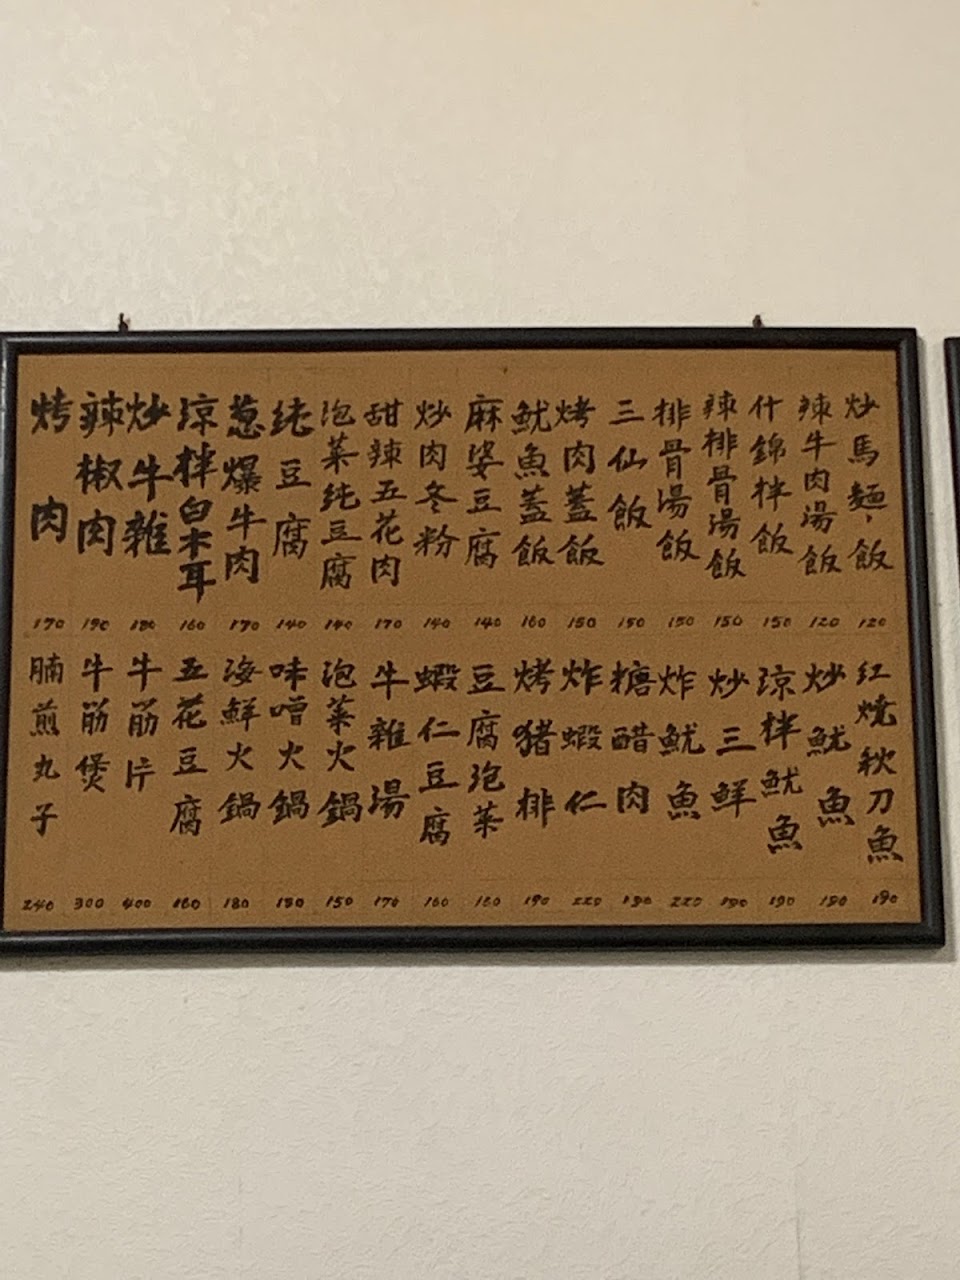 炒馬麵，飯 120
辣牛肉湯飯 120
什錦拌飯 150
辣排骨湯飯 150
排骨湯飯 150
三仙飯 150
烤肉蓋飯 150
魷魚蓋飯 160
麻婆豆腐 140
炒肉冬粉 140
甜辣五花肉 170
泡菜純豆腐 140
純豆腐 140
葱爆牛肉 170
涼拌白木耳 160
炒牛雜 180
辣椒肉 190
烤肉 170
紅燒秋刀魚 190
炒魷魚 190
涼拌魷魚 190
炒三鮮 190
炸魷魚 220
糖醋肉 190
炸蝦仁 220
烤豬排 190
豆腐泡菜 160
蝦仁豆腐 160
牛雜湯 170
泡菜火鍋 150
味噌火鍋 150
海鮮火鍋 180
五花豆腐 160
牛筋片 400
牛筋煲 300
腩煎丸子 240